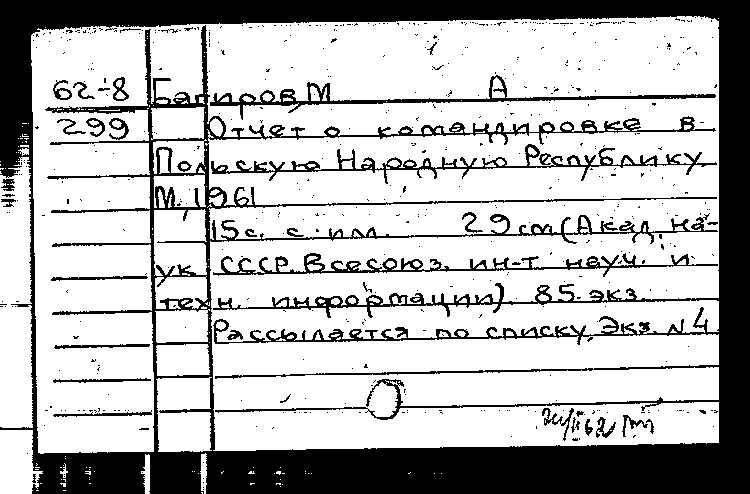 62-8 Багиров, М А
299 Отчет о командировке в
Польскую Народную Республику.
М., 1961
15с. с илл. 29 см (Акад. на-
ук СССР. Всесоюз. ин-т науч. и
техн. информации). 85 экз.
Рассылается по списку. Экз. N 4